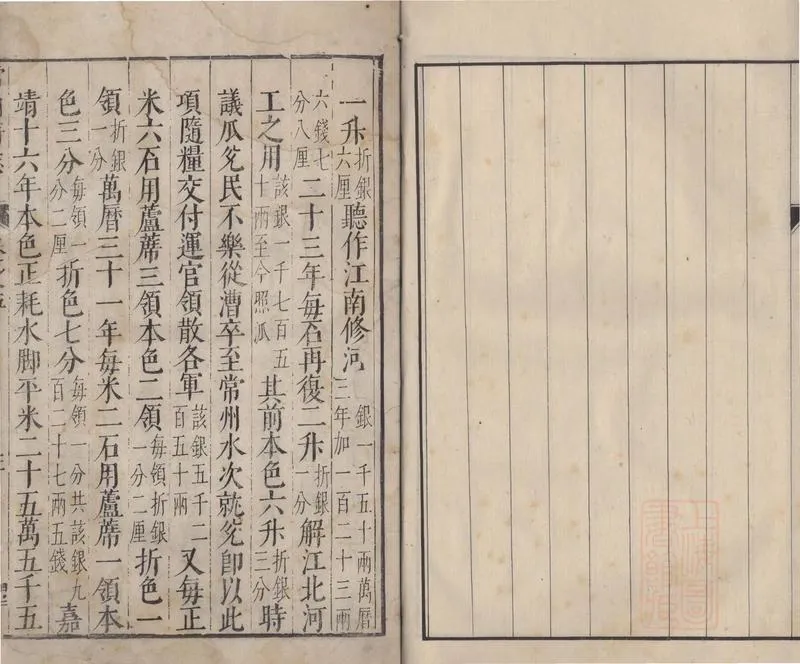 一升折銀六厘聽作江南修河銀一千五十兩萬曆三年加一百二十三兩
六錢七分八厘二十三年每石再復二升折銀一分解江北河
工之用該銀一千七百五十兩至今照瓜其前本色六升折銀三分時
議瓜兌民不樂從漕卒至常州水次就兌卽以此
項隨糧交付運官領散各軍該銀五千二百五十兩又每正
米六石用蘆蓆三領本色二領每領折銀一分二厘折色一
領折銀一分萬曆三十一年每米二石用蘆蓆一領本
色三分每領一分二厘折色七分每領一分共該銀九百二十七兩五錢嘉
靖十六年本色正耗水脚平米二十五萬五千五